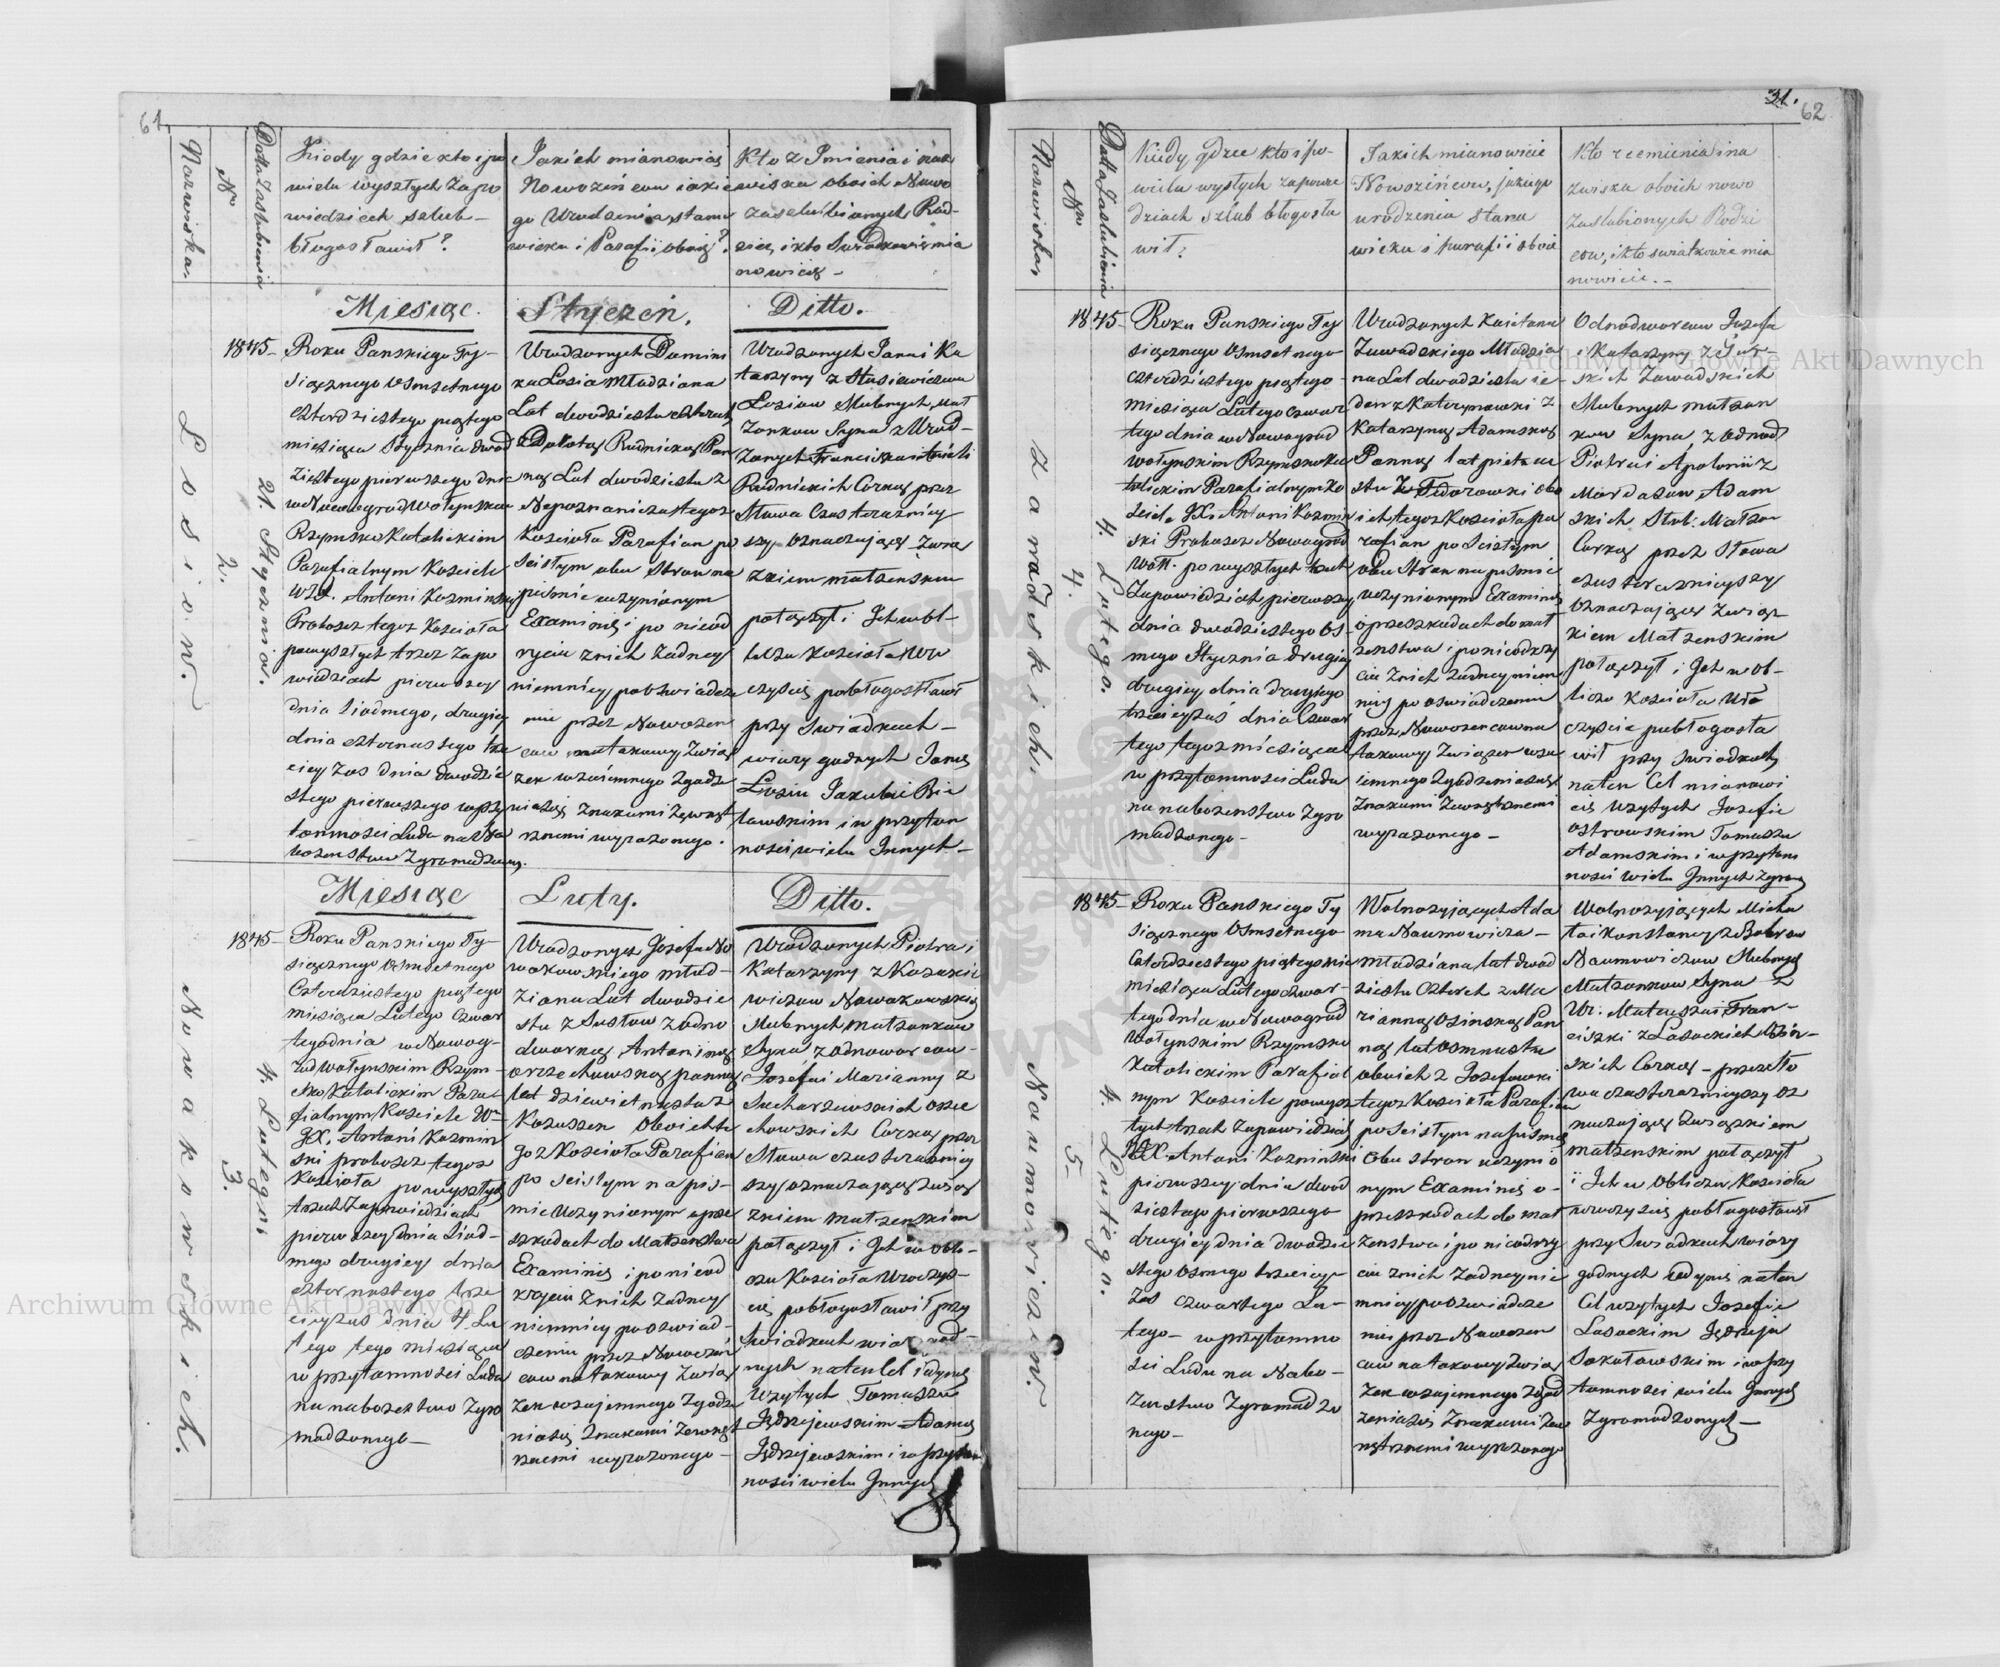 61.
Nazwiska.
Nro
Datta Zaslubienia
Kiedy gdzie kto i po
wielu wyszłych Zapo
wiedziech szlub
błogosławił?
Jakich mianowicie
Nowożeńcow iakie
go Urodzenia, stanu
wieku i Parafii oboie?
Kto z Imienia i naz
wiska oboich Nowo
zaszlubionych Rod-
zice, i kto Swiadkowie mia
nowicie
Miesiąc. Styczeń. Ditto.
Łosiow.
2.
21. Stycznia.
1845
Roku Panskiego Ty-
siącznego Osmsetnego
czterdziestego piątego
miesiąca Stycznia dwod
ziestego pierwszego dnia
w Nowogrod Wołynskim
Rzymsko Katolickim
Parafialnym Kosciele
WJX. Antoni Kozminski
Proboszcz tegoz Koscioła
po wyszłych trzech Zapo
wiedziach pierwszey
dnia siodmego, drugiey
dnia czternastego trze
ciey zas dnia dwodzie
stego pierwszego w przy
tomnosci Ludu na Na
bozenstwo Zgromadzonego.
Urodzonych Domini
ka Łosia Młodziana
Lat dwodziestu czterech
z Dorotą Rudnicką Pan
ną Lat dwodziestu z
Nepoznanicz tegoz
Koscioła Parafian po
scisłym obu stron na
pismie uczynionym
Examinie i po nieod
kryciu znich zadney
niemniey poswiadcze
niu przez Nowozen
cow na takowy Zwiąs
zek wzaiemnego Zgadz
niasię znakami Zewnęt
rznemi wyrazonego.
Urodzonych Jana i Ka
tarzyny z Stasiewiczow
Łosiow Slubnych Mał
zonkow Syna z Urod-
zonych Franciszka i Anieli
Rudnickich Corką przez
Słowa Czas terazniey
szy Oznaczaiące Zwią
zkiem małzenskim
połączył i Ich w obl-
iczu Koscioła Uro
czyscie pobłogosławił
przy Swiadkach
wiary godnych Janie
Łosiu Jakubie Bie
lawskim i w przytom
nosci wielu Innych
Miesiąc Luty. Ditto.
Nowakowskich.
3.
4. Lutego.
1845
Roku Panskiego Ty-
siącznego Osmsetnego
Czterdziestego piątego
miesiąca Lutego Czwar
tego dnia w Nowog-
rod Wołynskim Rzym-
sko Katolickim Para-
fialnym Kosciele W
JX. Antoni Kozmin
ski proboszcz tegoz
Koscioła po wyszłych
trzech Zapowiedziach
pierwszey dnia Siod-
mego drugiey dnia
czternastego trze
ciey zas dnia 4 Lu
tego tego miesiąca
w przytomnosci Ludu
na nabozenstwo Zgro
madzonego
Urodzonych Jozefa No
wakowskiego młod-
ziana Lat dwodzie
stu z Susłow z odno
dworką Antoniną
Orzechowską panną
lat dziewietnastu z
Kozuszek oboich te
goz Koscioła Parafian
po scisłym na pis-
mie Uczynionym o prze
szkodach do Małzenstwa
Examinie i po nieod
kryciu znich zadney
niemniey po oswiad-
czeniu przez Nowozen
cow na takowy Zwiąs
zek wzaiemnego Zgodze
niasię znakami Zewnęt
rznemi wyrazonego
Urodzonych Piotra i
Katarzyny z Kozakie
wiczow Nowakowskich
Slubnych małzonkow
Syna z odnodworcow
Jozefa i Marianny z
Sucharzewskich Orze
chowskich Corką przez
Słowa czas terazniey
szy oznaczaiące Zwią
zkiem małzenskim
połączył i Ich w obli-
czu Koscioła Uroczys-
cie pobłogosławił przy
Swiadkach wiary god-
nych naten Cel idynie
Uzytych Tomaszu
Jędrzejewskim Adamie
Jędrzejewskim i w przytom
nosci wielu Innych
31.
62
Nazwiska
Nro
Datta Zaslubienia
Kiedy gdzie kto i po-
wielu wyszłych zapowie
dziach szlub błogosła
wił?
Jakich mianowicie
Nowozińcow, jakiego
urodzenia stanu
wieku i parafii oboie
Kto z iemienia i na
zwiska oboich nowo
zaslubionych Rodzi
cow, i kto swiatkowie mia
nowicie.
Zawadzkich.
4.
4. Lutego.
1845
Roku Panskiego Ty
siącznego Osmsetnego
czterdziestego piątego
miesiąca Lutego Czwar
tego dnia w Nowogrod
wołynskim Rzymsko Ka
tolickim Parafialnym Ko
sciele JX. Antoni Kozmin
ski Proboszcz Nowogrod
Woł. po wyszłych trzech
Zapowiedziach pierwszey
dnia dwodziestego Os-
mego Stycznia drugiey
drugiey dnia drugiego
trzeciey zas dnia Czwar
tego tegoz miesiąca
w przytomnosci Ludu
na nabozenstwo Zgro
madzonego
Urodzonych Kaietana
Zawadzkiego Młodzia
na Lat dwodziestu sie
dem z Katerynowki z
Katarzyną Adamską
Panną lat pietna
stu z Fedorowki obo
ich tegoz Koscioła pa
rafian po scisłym
obu stron na pismie
uczynionym Examinie
o przeszkodach do mał
zenstwa i po nieodkry
ciu znich zadney niem
niey po oswiadczeniu
przez Nowozencow na
takowy Związek wza
iemnego Zgodzenia się
Znakami Zewnętrznemi
wyrazonego
Odnodworcow Jozefa
i Katarzyny z
skich Zawadzkich
Slubnych małzon
kow Syna z Odnod
Piotra i Apolonii z
Mordasow Adam
skich Slub: Małzon
Corką przez słowa
czas teraznieyszy
Oznaczaiące Związ
kiem Małzenskim
połączył i Ich w ob-
liczu Koscioła Uro
czyscie pobłogosła
wił przy swiadkach
naten Cel mianowi
cie Uzytych Jozefie
Ostrowskim Tomaszu
Adamskim i w przytom
nosci wielu Innych Zgrom
Naumowiczow.
5.
4. Lutego.
1845
Roku Panskiego Ty
siącznego Osmsetnego
Czterdziestego piątego mie
miesiąca Lutego Czwar-
tego dnia w Nowogrod
Wołynskim Rzymsko
Katolickim Parafial
nym Kosciele po wysz
łych trzech Zapowiedziach
JX. Antoni Kozminski
pierwszey dnia dwod
ziestego pierwszego
drugiey dnia dwodzie
stego Osmego trzeciey
zas czwartego Lu-
tego w przytomno
sci Ludu na Nabo-
zenstwo Zgromadzo
nego
Wolnozyiących Ada
ma Naumowicza
młodziana lat dwod
ziestu Czterech z Ma
rianną Osinską Pan
ną lat Osmnastu
oboich z Jozefowki
tegoz Koscioła Parafian
po scisłym na pismie
Obu stron uczynio
nym Examinie o-
przeszkodach do mał
zenstwa i po nieodkry
ciu znich zadney nie
mniey po oswiadcze
niu przez Nowozen
cow na takowy Zwiąs
zek wzajemnego Zgod
zenia się Znakami Zew
nętrznemi wyrazonego
Wolnozyjących Micha
ła i Konstancyi z Bobrow
Naumowiczow Slubnych
Małzonkow Syna z
Ur: Mateusza i Fran-
ciszki z Lasockich Osin-
skich Corką przez sło
wa czas teraznieyszy oz
naczaiące Związkiem
małzenskim połączył
i Ich w Obliczu Koscioła
uroczyscie pobłogosławił
przy Swiadkach wiary
godnych iedynie naten
Cel uzytych Jozefie
Lasockim Jędrzeju
Sokołowskim i w przy
tomnosci wielu Innych
Zgromadzonych
Archiwum Główne Akt Dawnych
Archiwum Główne Akt Dawnych